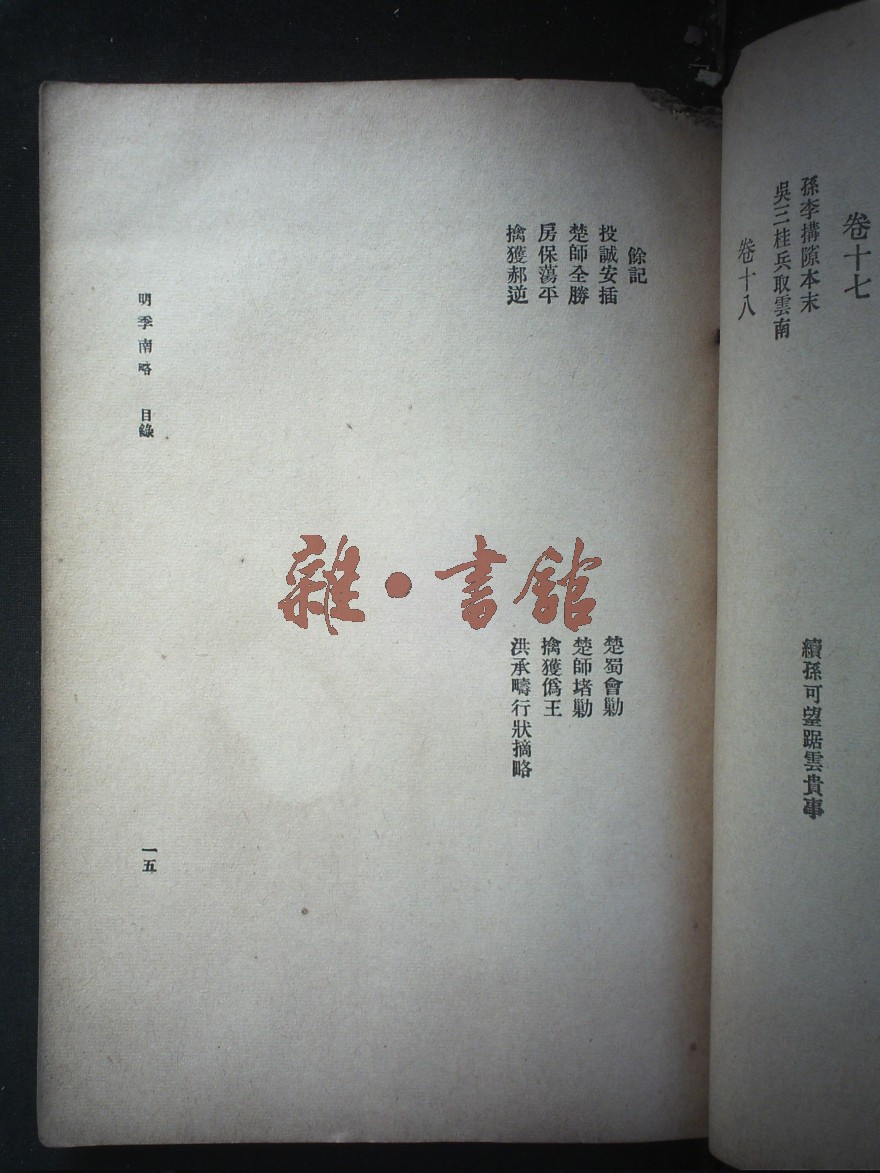 卷十七
孫李搆隙本末
續孫可望踞雲貴事
吳三桂兵取雲南
卷十八
餘記
投誠安插
楚蜀會勦
楚師全勝
楚師堵勦
房保蕩平
擒獲僞王
擒獲郝逆
洪承疇行狀摘略
明季南略 目錄
一五
雜·書館